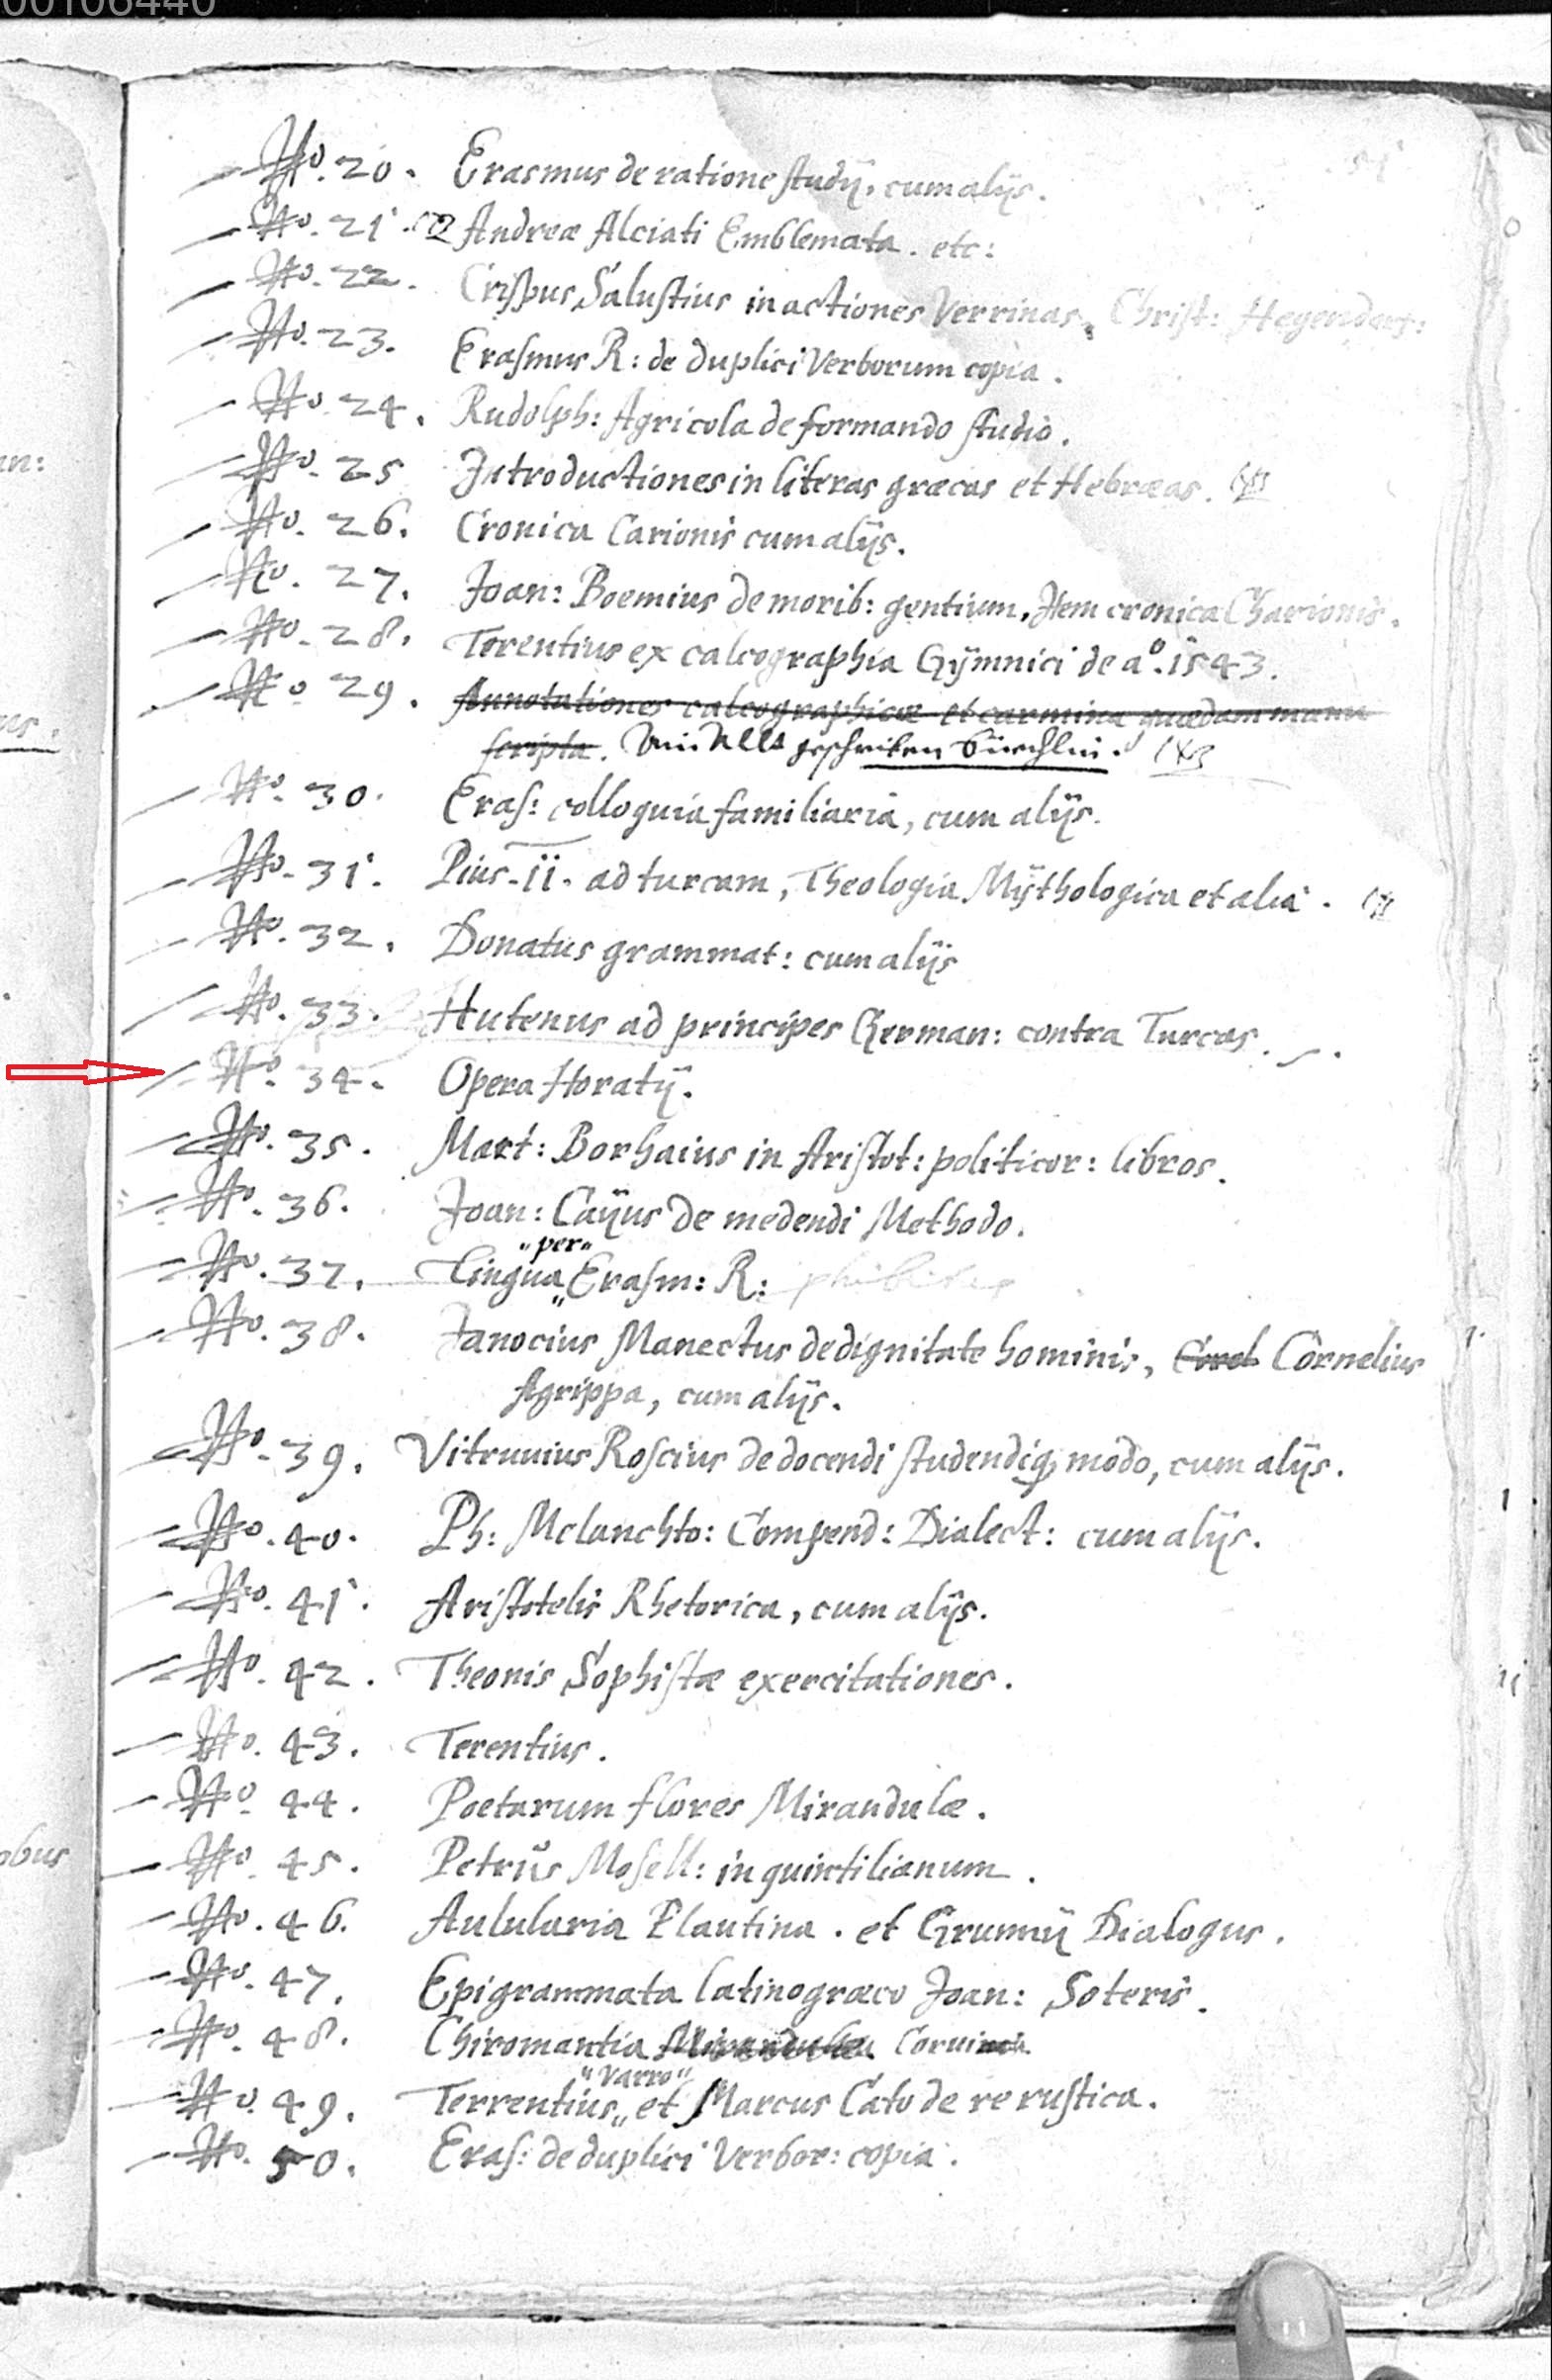 00106440
No. 20. Erasmus de ratione studÿ, cum alÿs.
No. 21. Andreæ Alciati Emblemata. etc:
No. 22. Crispus Salustius in actiones Verrinas, Christ: Hegendorf:
No. 23. Erasmus R: de duplici Verborum copia.
No. 24. Rudolph: Agricola de formando studio.
No. 25 Introductiones in literas græcas et Hebræas.
No. 26. Cronica Carionis cum alÿs.
No. 27. Joan: Boemius de morib: gentium, Item cronica Charionis.
No. 28. Terentius ex calcographia Gÿmnici de ao. 1543.
No. 29. Annotationes calcographicæ et carmina quædam manu
scripta. geschriben büechlin.
No. 30. Eras: colloquia familiaria, cum alÿs.
No. 31. Pius. II. ad turcam, Theologia Mÿthologica et alia.
No. 32. Donatus grammat: cum alÿs
No. 33. Hutenus ad principes German: contra Turcas.
No. 34. Opera Horatÿ.
No. 35. Mart: Borhaius in Aristot: politicor: libros.
No. 36. Joan: Caÿus de medendi Methodo.
"per"
No. 37. Lingua Erasm: R:
No. 38. Janocius Manectus de dignitate hominis, Cornelius
Agrippa, cum alÿs.
No. 39. Vitruuius Roscius de docendi studendiq modo, cum alÿs.
No. 40. Ph: Melanchto: Compend: Dialect: cum alÿs.
No. 41. Aristotelis Rhetorica, cum alÿs.
No. 42. Theonis Sophistæ exercitationes.
No. 43. Terentius.
No. 44. Poetarum flores Mirandulæ.
No. 45. Petrus Mosell: in quintilianum.
No. 46. Aulularia Plautina. et Grunnÿ Dialogus.
No. 47. Epigrammata latinogræca Joan: Soteris.
No. 48. Chiromantia Coruinæ.
"Varro"
No. 49. Terrentius,, et Marcus Cato de re rustica.
No. 50. Eras: de duplici Verbor: copia.